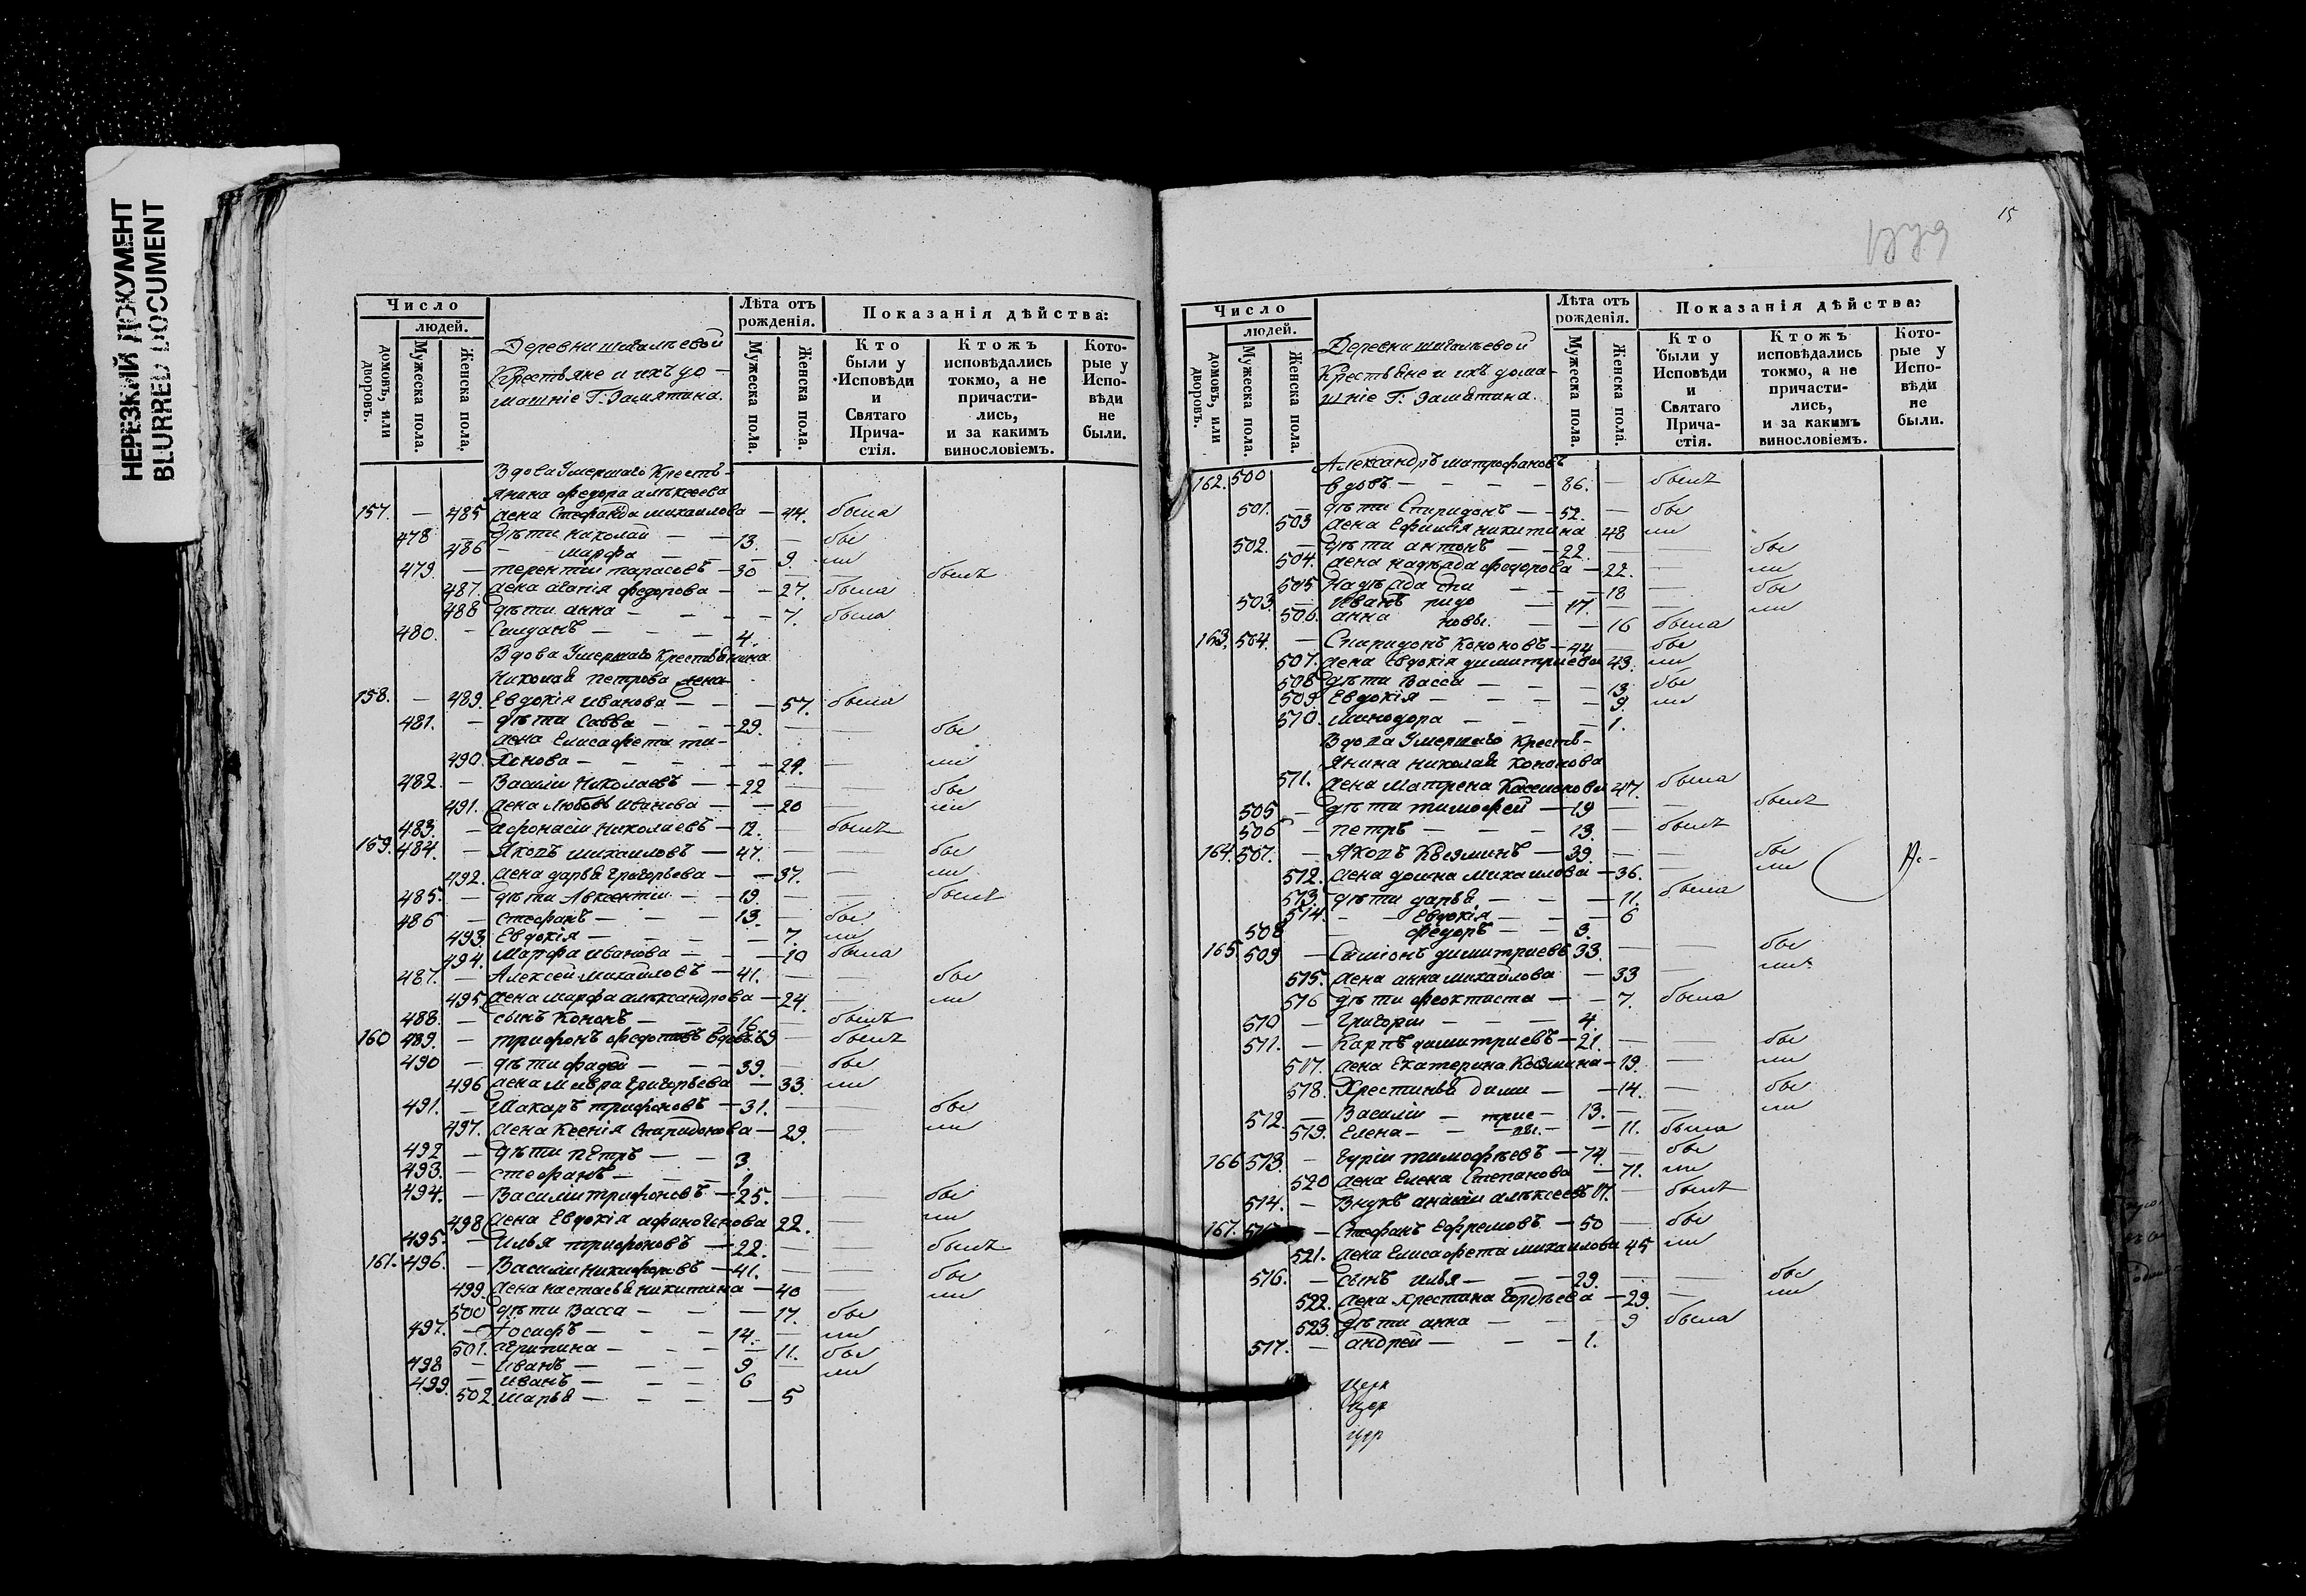 НЕРЕЗКИЙ ДОКУМЕНТ
BLURRED DOCUMENT
Число
людей.
домовъ, или дворовъ.
Мужеска пола.
Женска пола.
Деревни шигалѣевой
Крестьяне и ихъ до-
машніе Г: Замятина.
Лѣта отъ рожденія.
Мужеска пола.
Женска пола.
Показанія дѣйства:
Кто были у Исповѣди и Святаго Прича-стія.
Ктожъ исповѣдались токмо, а не причасти-лись, и за какимъ винословіемъ.
Кото-рые у Испо-вѣди не были.
Вдова Умершаго Кресть-
янина федора алѣксеева
157. — 485 жена Стефанида михаилова — 44. была
478 — дѣти николай — — 13. — бы
486 — марфа — — 9. ли
479. — терентий тарасовъ — 30 — — былъ
487. жена агапія федорова — — 27. была
488 дѣти анна — — — 7. была
480. — — — 4.
Вдова Умершаго Крестьянина
Николая петрова жена
158. — 489. Евдокія иванова — — — 57. была
481. — дѣти Савва — — 29. — — бы
жена Елисафета ти-
490. хонова — — — — 24. — ли
482. — Василій Николаевъ — 22 — — бы
491. жена Любовь иванова — — 20 — ли
483. — афонасій николаевъ — 12. — былъ
159. 484. — Яковъ михаиловъ — 47. — — бы
492. жена дарья григорьева — — 37. — ли
485. — дѣти Авксентій — — 19. — — былъ
486 — стефанъ — — — 13. — бы
493. Евдокія — — — — 7. ли
494. Марфа иванова — — — 10 была
487. — Алексей михайловъ — 41. — — бы
495. жена марфа алѣксандрова — 24. — ли
488. — сынъ Кононъ — — — 16. — былъ
160 489. — трифонъ федотовъ вдовъ 69 — былъ
490 — дѣти фадей — — — 39. — бы
496 жена мавра григорьева — 33. ли
491. — Макаръ трифоновъ — 31. — — бы
497. жена Ксенія Спиридонова — 29. — ли
492 — дѣти пётръ — — 3.
493. — стефанъ — — — 1.
494. — Василій трифоновъ — 25. — — бы
498 жена Евдокія афиногенова 22. — ли
495. — Илья трифоновъ — 22. — — былъ
161. 496. — Василій никифоровъ — 41. — — бы
499. жена настасья никитина — 40 — ли
500 дѣти Васса — — — 17. бы
497. — Іосифъ — — — 14. — ли
501. агрипина — — — — 11. бы
498 — Иванъ — — — 9 — ли
499. — иванъ — — — 6
502. Марья — — — — 5
15
Число
людей.
домовъ, или дворовъ.
Мужеска пола.
Женска пола.
Деревни шигалѣевой
Крестьяне и ихъ дома-
шніе Г: Замятина.
Лѣта отъ рожденія.
Мужеска пола.
Женска пола.
Показанія дѣйства:
Кто были у Исповѣди и Святаго Прича-стія.
Ктожъ исповѣдались токмо, а не причасти-лись, и за какимъ винословіемъ.
Кото-рые у Испо-вѣди не были.
Александръ матрофановъ
162. 500 вдовъ — — — — 86. — былъ
501. — дѣти Спиридонъ — — 52. — бы
503 жена Ефимія никитина 48 ли
502. — дѣти антонъ — — 22. — — бы
504. жена надѣжда федорова — 22. — ли
505 Надѣжда спи — — — 18 — бы
503. — Иванъ ридо — 17. — — ли
506. анна новы. — — 16 была
163. 504. — Спиридонъ Кононовъ — 44 — бы
507. жена Евдокія димитриева 43. ли
508 дѣти Васса — — — 13 бы
509. Евдокія — — — — 9. ли
510. минодора — — — 1.
Вдова Умершаго Кресть-
янина николая Кононова
511. жена Матрена Кассионова 47. была
505 — дѣти тимофей — 19 — — былъ
506 — петръ — — — 13. — былъ
164. 507. — Яковъ Кѹзминъ — 39. — — бы
512. жена домна михаилова — 36. — ли
513. дѣти дарья — — — 11. была
514. — Евдокія — — — 6
508 — федоръ — — 3.
165. 509 — Симіонъ димитриевъ 33. — — бы
515. жена анна михайлова — 33 — ли
516 дѣти феоктиста — — 7. была
510 — Григорій — — — 4.
511. — Карпъ димитриевъ — 21. — — бы
517. жена Екатерина Козмина — 19. — ли
518. Хрестинья дими — — 14. — бы
512. — Василій — трие — 13. — — ли
519. Елена — — вы. — — 11. была
166 513. — Гурій тимофѣевъ — 74 — бы
520 жена Елена Степанова — 71. ли
514. — Внукъ ананій алѣксеевъ 17. — былъ
167. — Стефанъ Ефремовъ — 50 — бы
521. жена Елисафета михаилова 45 ли
516. — сынъ илья — — — 29. — — бы
522. жена хрестина Гордѣева — 29. — ли
523. дѣти анна — — — 9 была
517. — андрей — — — 1.